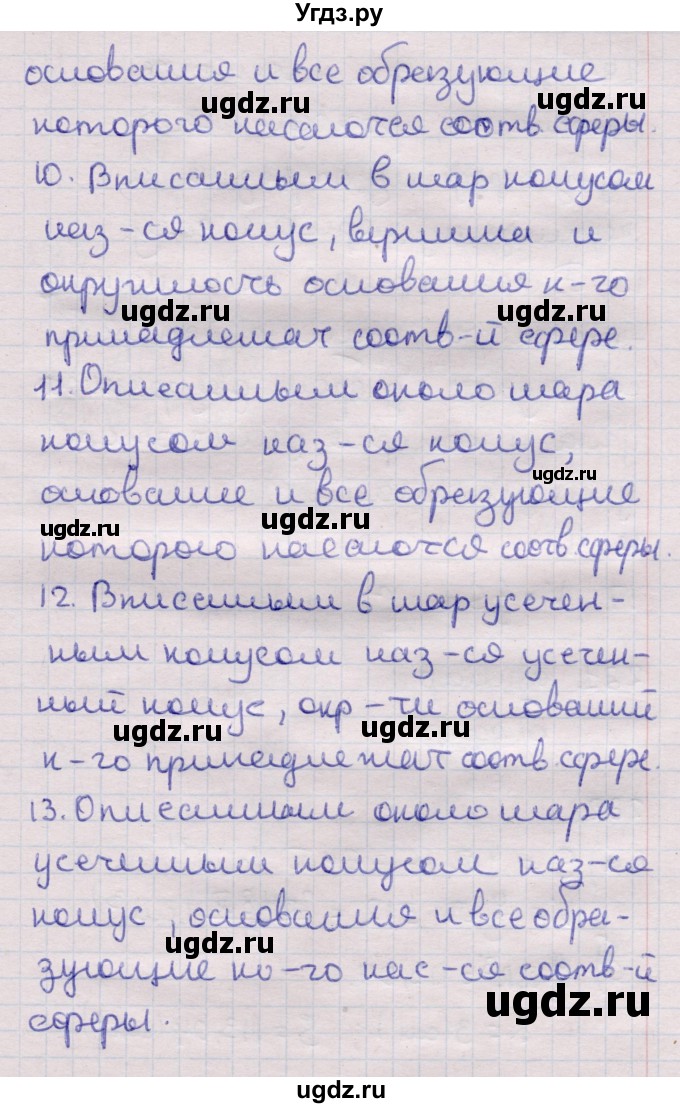 Угдз.ру
основания и все образующие
ugdz.ru ugdz.ru
которого касаются соотв. сферы.
10. Вписанным в шар конусом
наз-ся конус, вершина и
окружность основания к-го
ugdz.ru ugdz.ru
принадлежат соотв-й сфере.
11. Описанным около шара
конусом наз-ся конус,
ugdz.ru
основание и все образующие
ugdz.ru ugdz.ru
которого касаются соотв. сферы.
12. Вписанным в шар усечен-
ugdz.ru ugdz.ru
ным конусом наз-ся усечен-
ный конус, окр-ти оснований
ugdz.ru ugdz.ru
к-го принадлежат соотв. сфере.
13. Описанным около шара
ugdz.ru ugdz.ru
усеченным конусом наз-ся
конус, основания и все обра-
ugdz.ru ugdz.ru
зующие ко-го кас-ся соотв-й
ugdz.ru
сферы.
ugdz.ru